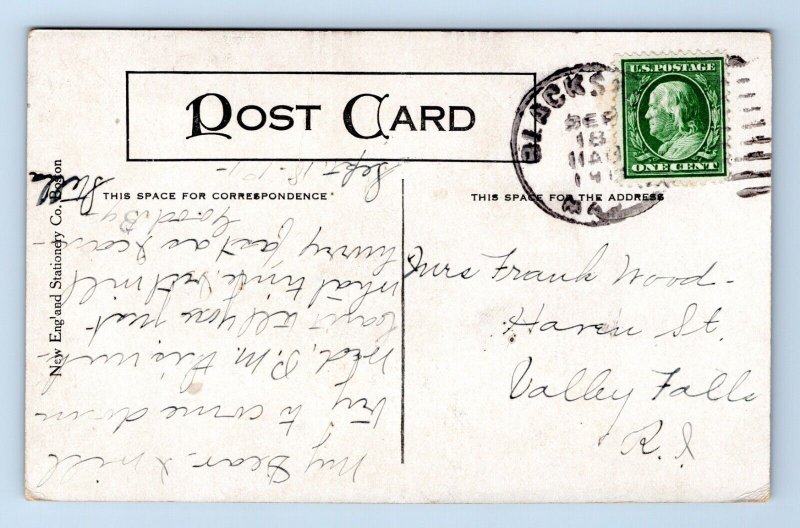 POST CARD
THIS SPACE FOR CORRESPONDENCE
THIS SPACE FOR THE ADDRESS
New England Stationery Co. Boston
BLACKS
SEP
18
11 A
U.S. POSTAGE
ONE CENT
Mrs Frank Wood-
Haven St.
Valley Falls
R.I
Sept. 18-
My Dear. I will
try to come down
Wed. P.M. this week
Can't tell you just
what time, but will
hurry just as I can
Good By-